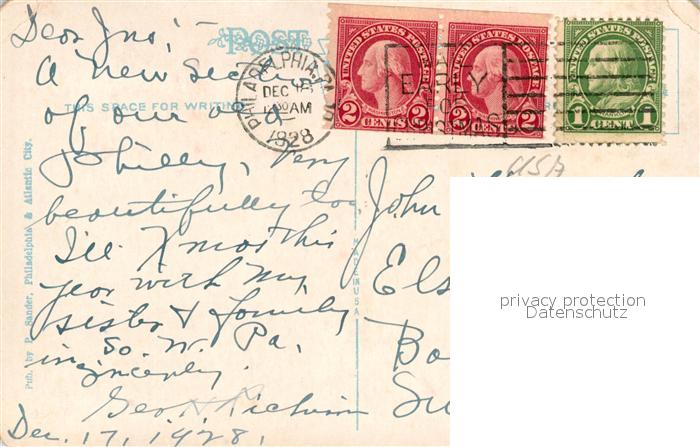 Dear Jno!
POST
A new section
of our old
THIS SPACE FOR WRITING
Philly, Very
beautifully too,
I'll Xmas this
year with my
sister & family
in So. W. Pa.
Sincerely.
Geo
Dec. 17, 1928.
PHILADELPHIA, PA.
DEC 18
AM
1928
UNITED STATES POSTAGE
2 CENTS 2
UNITED STATES POSTAGE
2 CENTS 2
UNITED STATES POSTAGE
1 CENT 1
EARLY
FOR
USA
John
Els
Ba
Su
MADE IN USA
Pub. by P. Sander, Philadelphia & Atlantic City.
privacy protection
Datenschutz